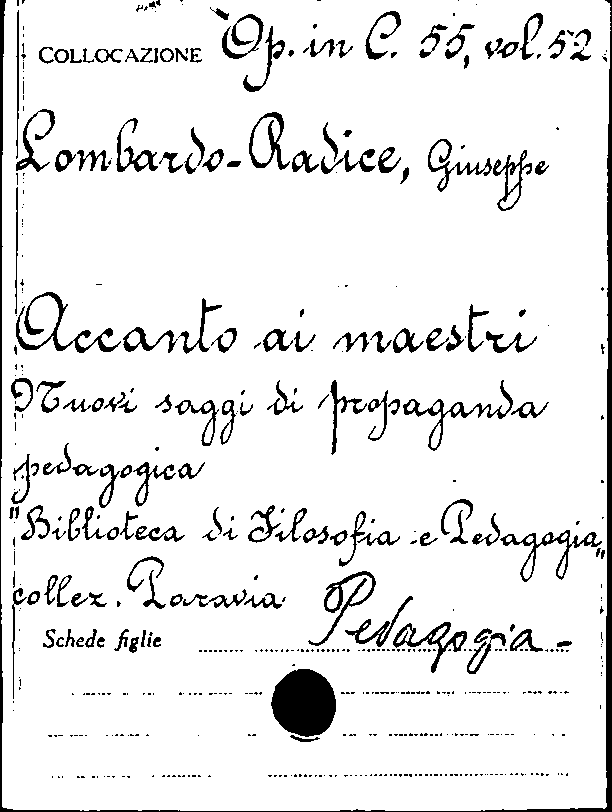 COLLOCAZIONE Op. in C. 55, vol. 52
Lombardo-Radice, Giuseppe
Accanto ai maestri
Nuovi saggi di propaganda
pedagogica
"Biblioteca di Filosofia e Pedagogia„
collez. Paravia
Schede figlie Pedagogia -